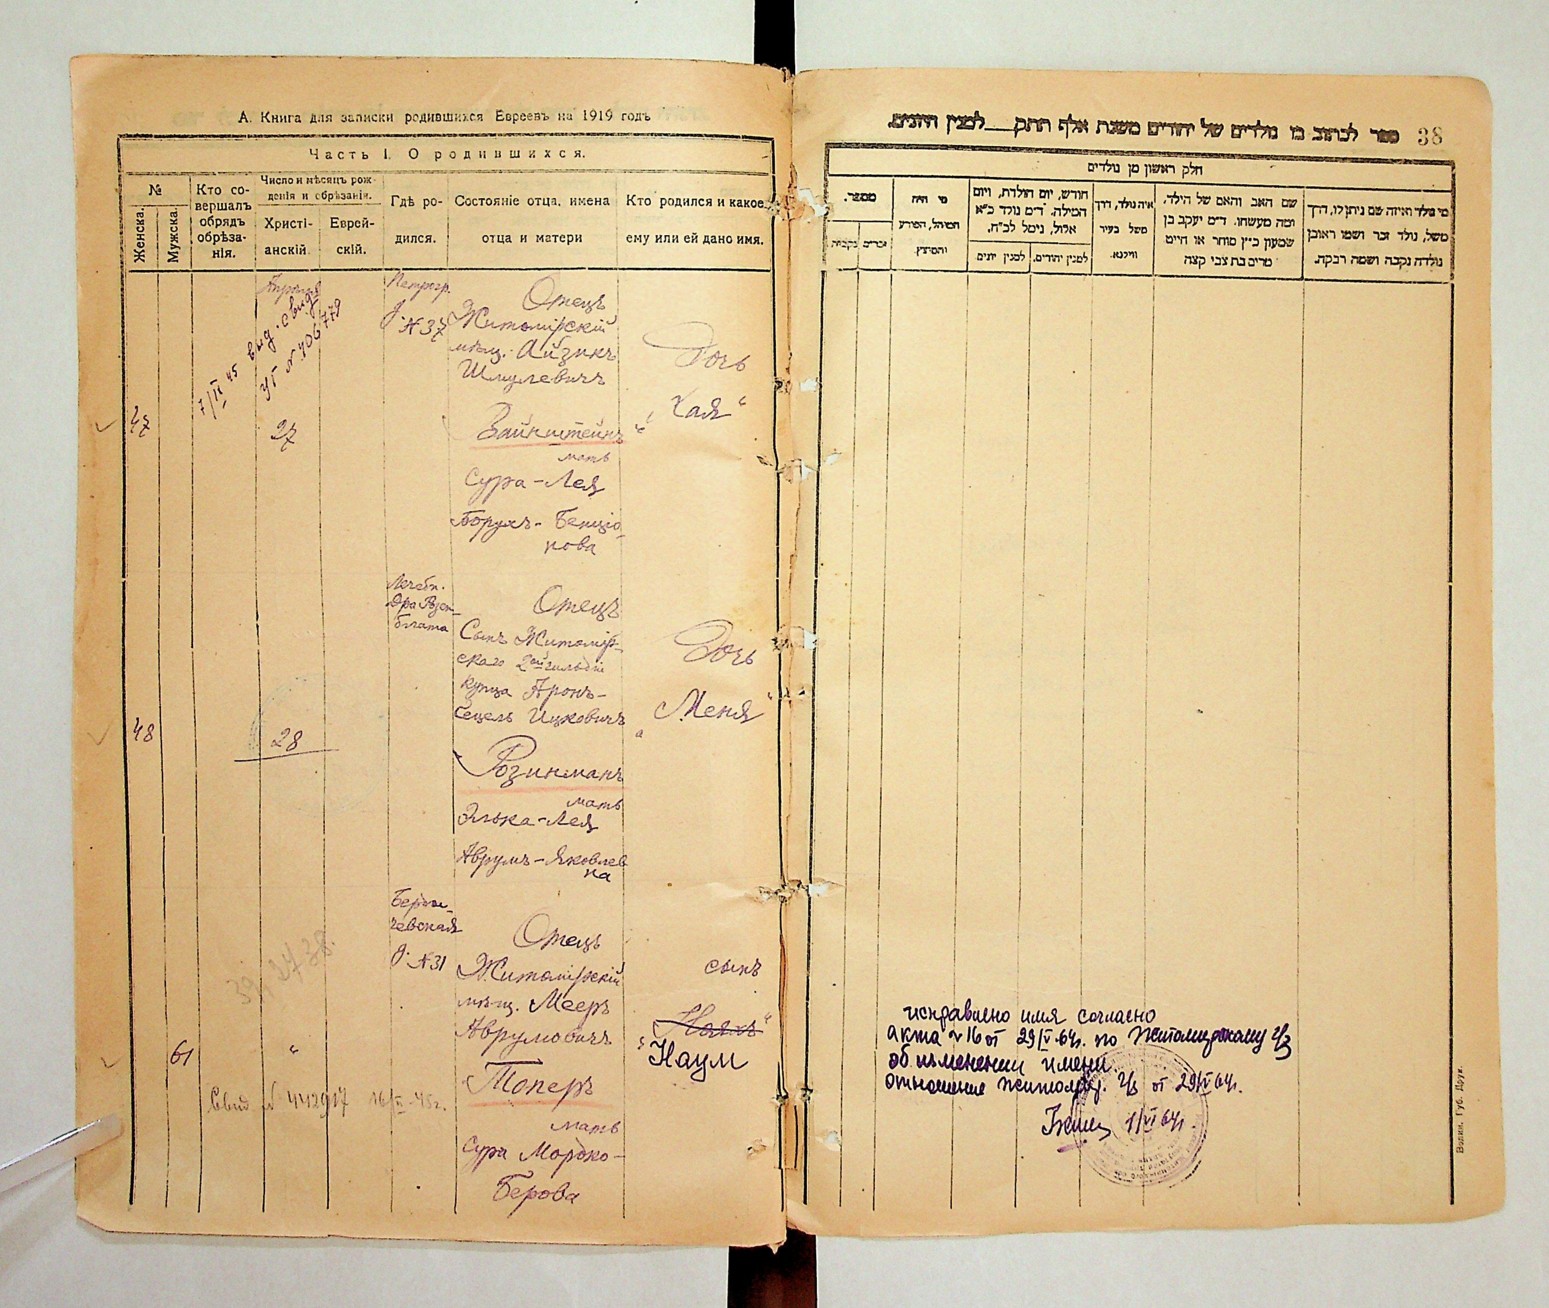 А. Книга для записки родившихся Евреевъ на 1919 годъ
Часть I. О родившихся.
№
Женска.
Мужска.
Кто со-
вершалъ
обрядъ
обрѣза-
нія.
Число и мѣсяцъ рож-
денія и обрѣзанія.
Христі-
анскій.
Еврей-
скій.
Гдѣ ро-
дился.
Состояніе отца, имена
отца и матери
Кто родился и какое
ему или ей дано имя.
47
7/IV 45 выд. свид.
УГ № 406779
27
Петрогр.
д. № 37
Отецъ
Житомірскій
мѣщ. Айзикъ
Шмулевичъ
Вайнштейнъ
мать
Сура-Лея
Борухъ-Бенціо-
нова
Дочь
„Хая“
48
28
Лечебн.
Отецъ
Сынъ Житомір-
скаго 2ой гильдіи
купца Аронъ-
Ицковичъ
Розинманъ
мать
Элька-Лея
Аврумъ-Яковлев
на
Дочь
„Меня“
61
„
Свид № 442917 16/V-45г.
Берди-
чевская
д. № 31
Отецъ
Житомірскій
мѣщ. Мееръ
Аврумовичъ
Топеръ
мать
Сура Мордко-
Берова
сынъ
Наум
ספר לכתוב בו נולדים של יהודים משנת אלף התק למנין היונים.
38
חלק ראשון מן נולדים
מספר.
נקבות
זכרים
מי היה
המוהל, הפורע
והמוצץ.
חודש, יום הולדת, ויום
המילה. ד״מ נולד כ״א
אלול, נימל לכ״ח.
למנין יונים
למנין יהודים.
איה נולד, דרך
משל בעיר
ווילנא.
שם האב והאם של הילד,
ומה מעשהו. ד״מ יעקב בן
שמעון כ״ץ סוחר או חייט
מרים בת צבי קצה
מי נולד ואיזה שם ניתן לו, דרך
משל, נולד זכר ושמו ראובן
נולדה נקבה ושמה רבקה.
исправлено имя согласно
акта №16 от 29/V-64г. по Житомирскому г/з
об изменении имени.
отношение житомир. г/з от 29/V 64г.
1/VI 64г
Волин. Губ. Друк.